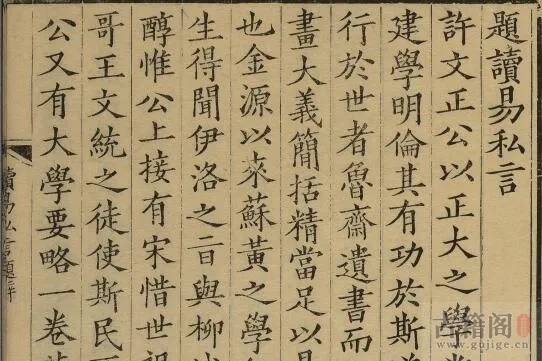 題讀易私言
許文正公以正大之學
建學明倫其有功於斯
行於世者魯齋遺書而
畫大義簡括精當足以
也金源以來蘇黃之學
生得聞伊洛之旨與柳
醇惟公上接有宋惜世祖
哥王文統之徒使斯民
公又有大學要略一卷
讀易私言題辭
古籍阁
https://www.gujige.cn